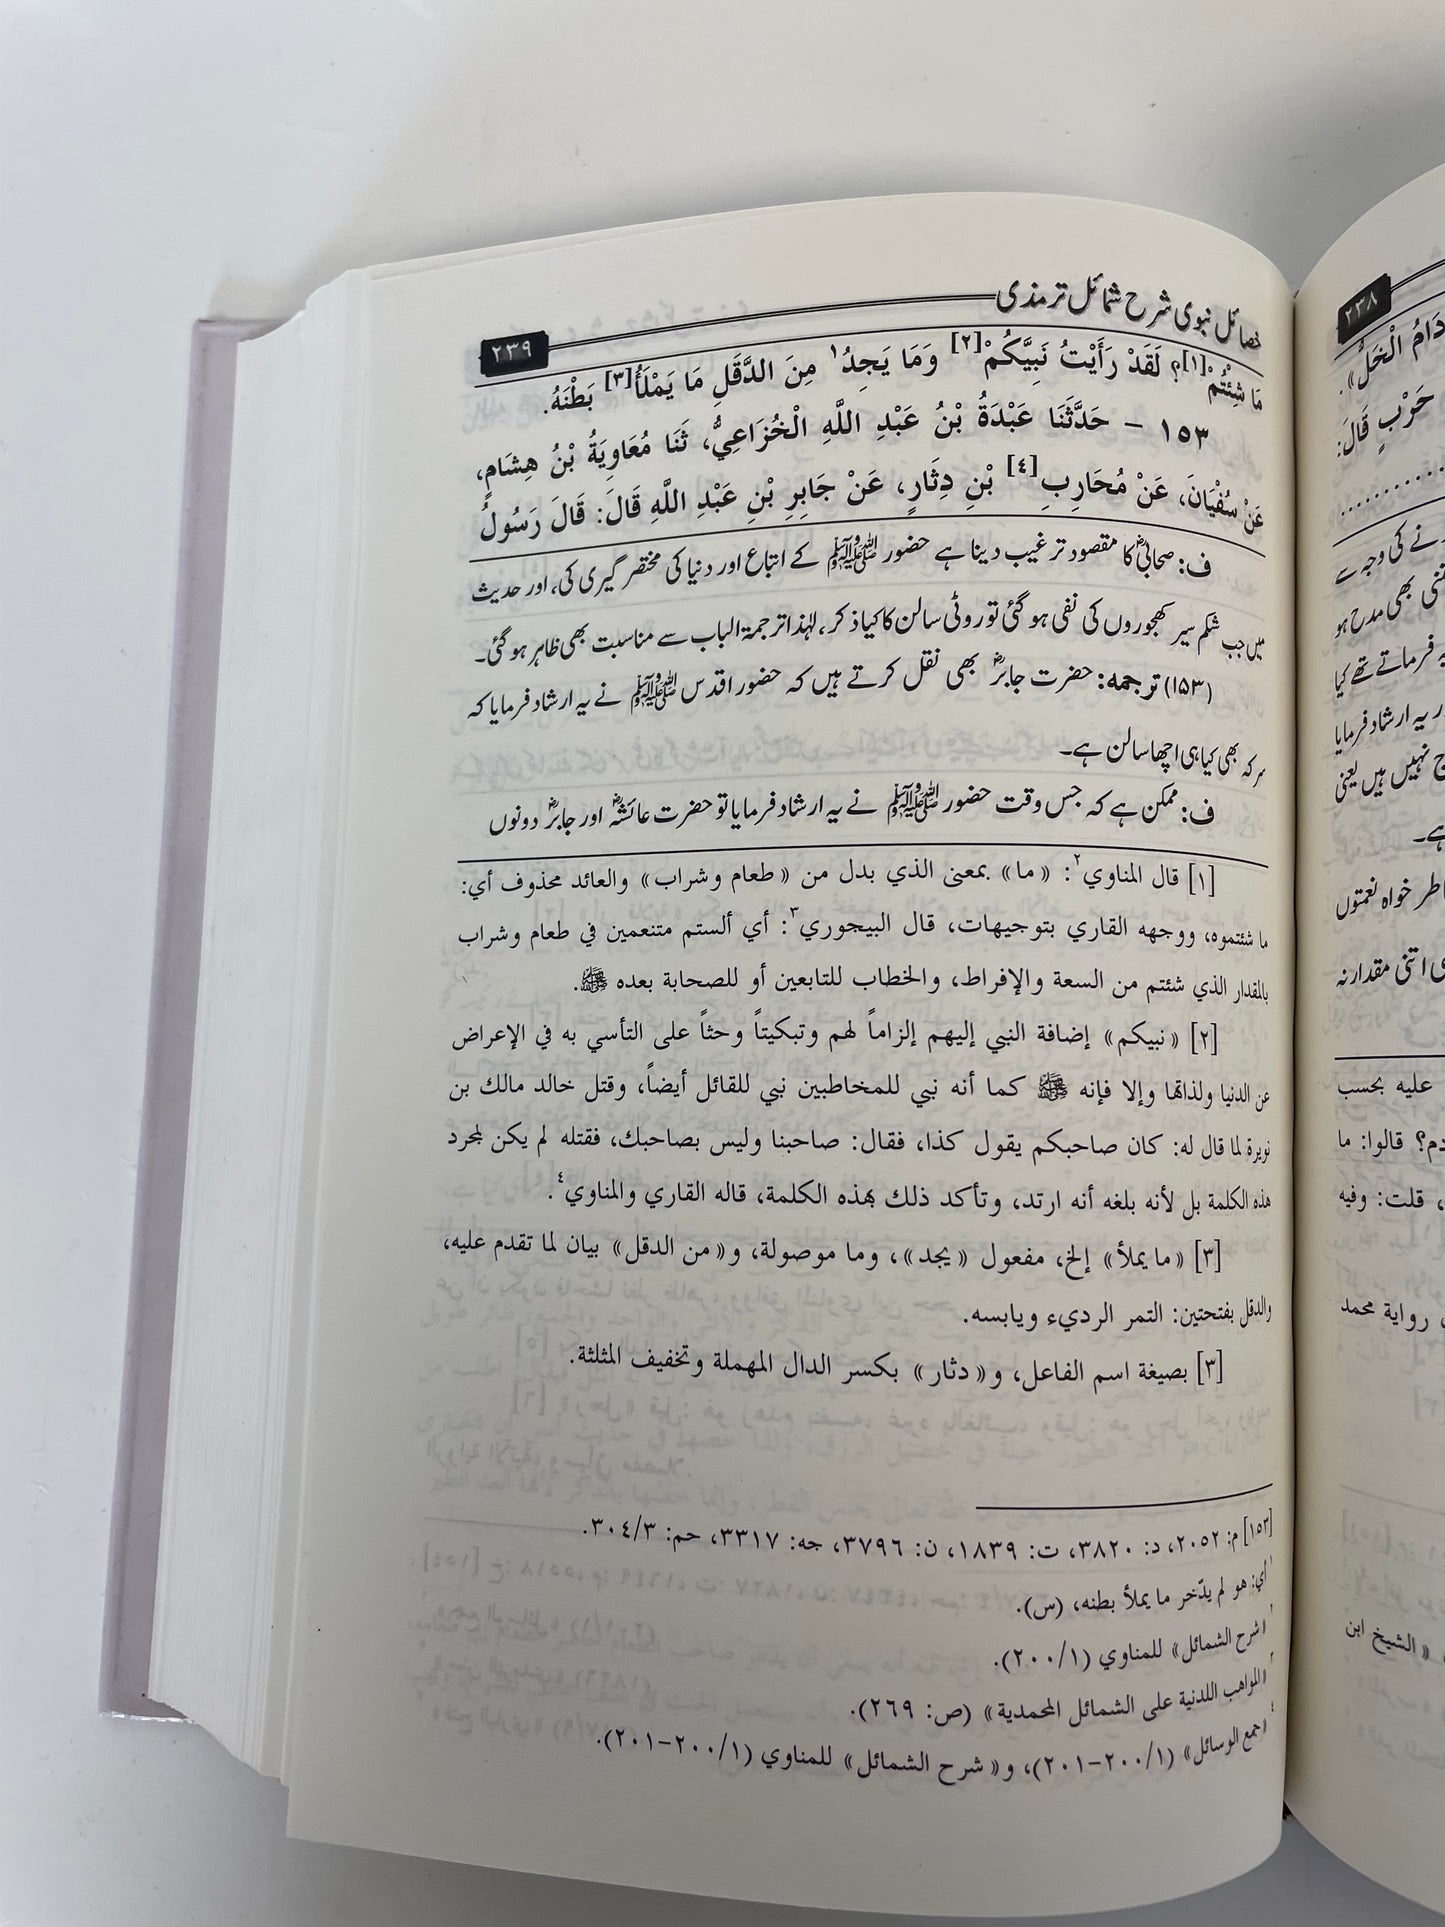 خصائل نبوی شرح شمائل ترمذی
٢٣٩
مَا شِئْتُمْ[١]؟ لَقَدْ رَأَيْتُ نَبِيَّكُمْ[٢] وَمَا يَجِدُ١ مِنَ الدَّقَلِ مَا يَمْلَأُ[٣] بَطْنَهُ.
١٥٣ – حَدَّثَنَا عَبْدَةُ بْنُ عَبْدِ اللَّهِ الْخُزَاعِيُّ، ثَنَا مُعَاوِيَةُ بْنُ هِشَامٍ،
عَنْ سُفْيَانَ، عَنْ مُحَارِبِ[٤] بْنِ دِثَارٍ، عَنْ جَابِرِ بْنِ عَبْدِ اللَّهِ قَالَ: قَالَ رَسُولُ
ف: صحابیؓ کا مقصود ترغیب دینا ہے حضور ﷺ کے اتباع اور دنیا کی مختصر گیری کی، اور حدیث
میں جب شکم سیر کھجوروں کی نفی ہو گئی تو روٹی سالن کا کیا ذکر، لہٰذا ترجمۃ الباب سے مناسبت بھی ظاہر ہو گئی۔
(۱۵۳) ترجمہ: حضرت جابرؓ بھی نقل کرتے ہیں کہ حضور اقدس ﷺ نے یہ ارشاد فرمایا کہ
سرکہ بھی کیا ہی اچھا سالن ہے۔
ف: ممکن ہے کہ جس وقت حضور ﷺ نے یہ ارشاد فرمایا تو حضرت عائشہؓ اور جابرؓ دونوں
[١] قال المناوي٢: «ما» بمعنى الذي بدل من «طعام وشراب» والعائد محذوف أي:
ما شئتموه، ووجهه القاري بتوجيهات، قال البيجوري٣: أي ألستم متنعمين في طعام وشراب
بالمقدار الذي شئتم من السعة والإفراط، والخطاب للتابعين أو للصحابة بعده ﷺ.
[٢] «نبيكم» إضافة النبي إليهم إلزاماً لهم وتبكيتاً وحثاً على التأسي به في الإعراض
عن الدنيا ولذاتها وإلا فإنه ﷺ كما أنه نبي للمخاطبين نبي للقائل أيضاً، وقتل خالد مالك بن
نويرة لما قال له: كان صاحبكم يقول كذا، فقال: صاحبنا وليس بصاحبك، فقتله لم يكن لمجرد
هذه الكلمة بل لأنه بلغه أنه ارتد، وتأكد ذلك بهذه الكلمة، قاله القاري والمناوي٤.
[٣] «ما يملأ» إلخ، مفعول «يجد»، وما موصولة، و«من الدقل» بيان لما تقدم عليه،
والدقل بفتحتين: التمر الرديء ويابسه.
[٣] بصيغة اسم الفاعل، و«دثار» بكسر الدال المهملة وتخفيف المثلثة.
[١٥٣] م: ٢٠٥٢، د: ٣٨٢٠، ت: ١٨٣٩، ن: ٣٧٩٦، جه: ٣٣١٧، حم: ٣٠٤/٣.
١ أي: هو لم يدّخر ما يملأ بطنه، (س).
٢ «شرح الشمائل» للمناوي (٢٠٠/١).
٣ «المواهب اللدنية على الشمائل المحمدية» (ص: ٢٦٩).
٤ «جمع الوسائل» (٢٠٠/١-٢٠١)، و«شرح الشمائل» للمناوي (٢٠٠/١-٢٠١).
٢٣٨
دَامُ الْخَلُّ».
حَرْبٍ قَالَ:
نے کی وجہ سے
نفی بھی مدح ہو
یہ فرماتے تھے کیا
ور یہ ارشاد فرمایا
ج نہیں ہیں یعنی
ہے۔
اطر خواہ نعمتوں
ی اتنی مقدار نہ
عليه بحسب
دم؟ قالوا: ما
، قلت: وفيه
رواية محمد
«الشيخ ابن